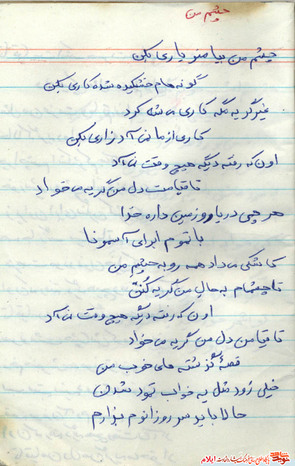 چشم من
چشم من بیا منو یاری بکن
گونه هام خشکیده شده کاری بکن
غیر گریه مگه کاری می شه کرد
کاری از ما نمی آد زاری بکن
اون که رفته دیگه هیچ وقت نمی آد
تا قیامت دل من گریه می خواد
هر چی دریا رو زمین داره خدا
با تموم ابرای آسمونا
کاشکی می داد همه رو به چشم من
تا چشام به حال من گریه کنن
اون که رفته دیگه هیچ وقت نمی آد
تا قیامت دل من گریه می خواد
قصهٔ گذشته های خوب من
خیلی زود مثل یه خواب تموم شدن
حالا باید سر رو زانوم بذارم